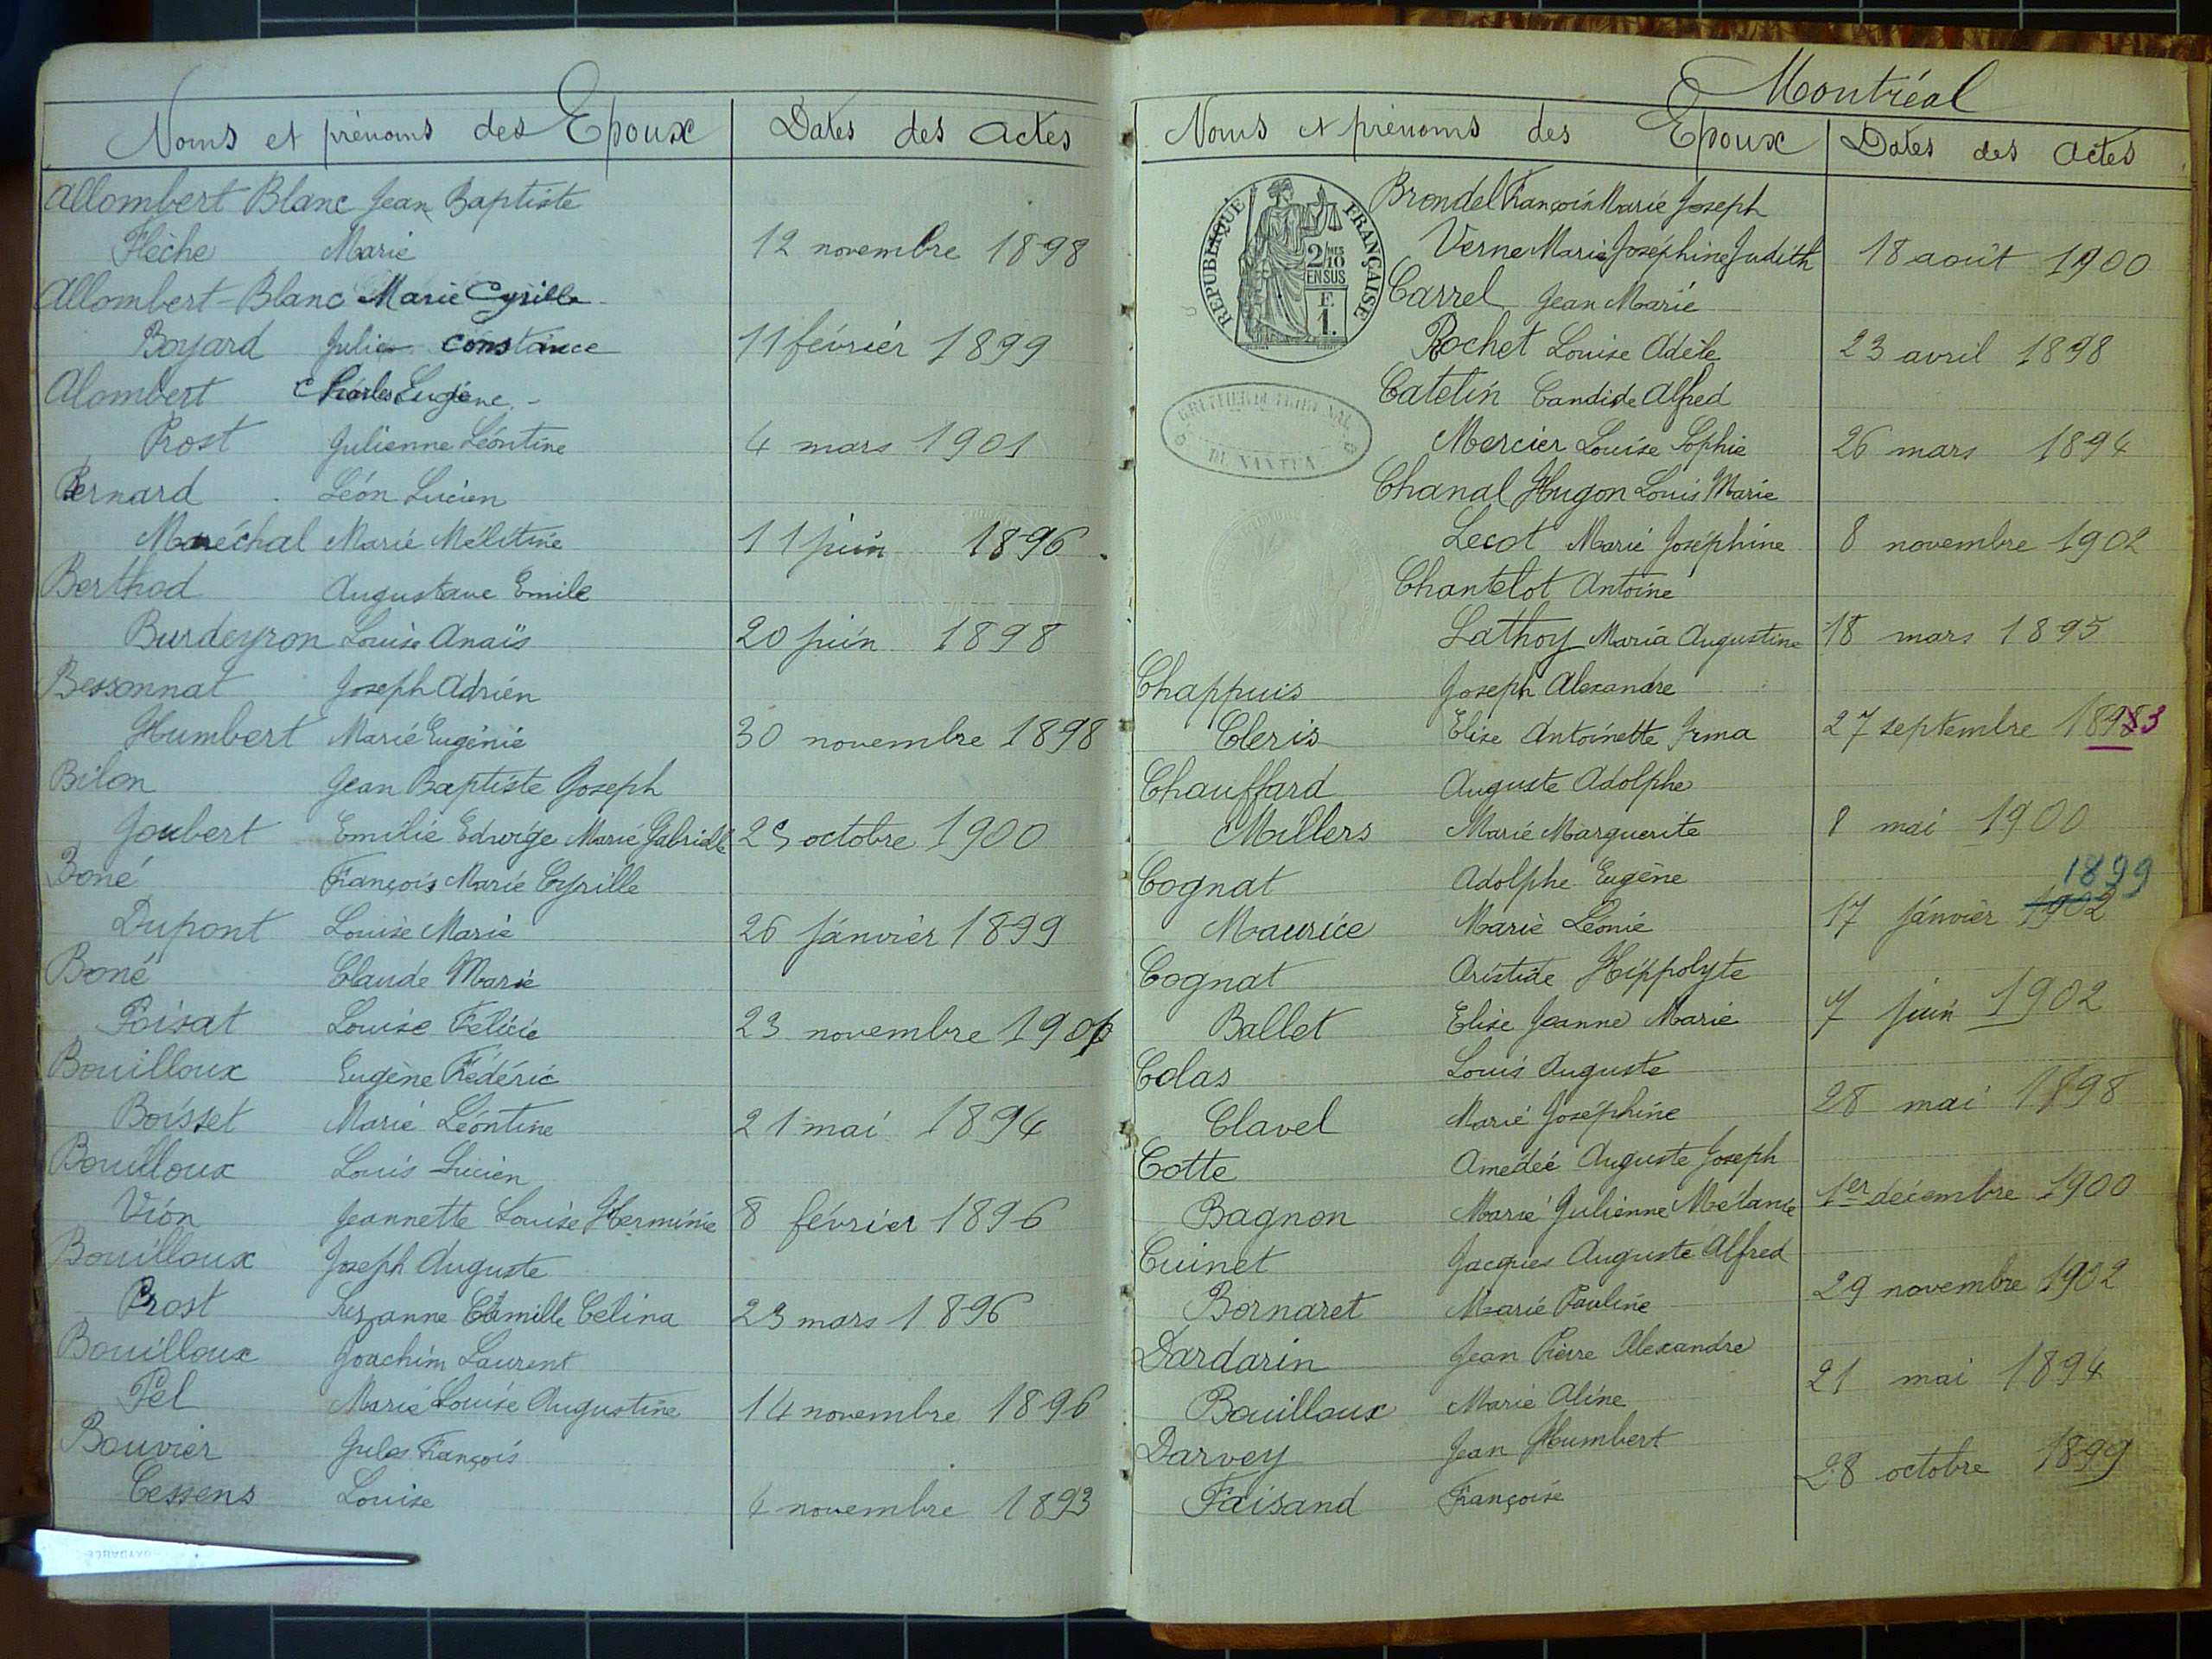 Noms et prénoms des Epoux Dates des actes
Allombert Blanc Jean Baptiste
Flèche Marie 12 novembre 1898
Allombert-Blanc Marie Cyrille
Boyard Julie Constance 11 février 1899
Alombert Charles Eugène
Prost Julienne Léontine 4 mars 1901
Bernard Léon Lucien
Maréchal Marie Mélitine 11 juin 1896
Berthod Augustave Emile
Burdeyron Louise Anaïs 20 juin 1898
Bessonnat Joseph Adrien
Humbert Marie Eugénie 30 novembre 1898
Bilon Jean Baptiste Joseph
Joubert Emilie Edwige Marie Gabrielle octobre 1900
Boné François Marie Cyrille
Dupont Louise Marie 26 janvier 1899
Boné Claude Marie
Poisat Louise Félicie 23 novembre
Bouilloux Eugène Frédéric
Boisset Marie Léontine 21 mai 1894
Bouilloux Louis Lucien
Vion Jeannette Louise Herminie 8 février 1896
Bouilloux Joseph Auguste
Prost Suzanne Camille Célina 23 mars 1896
Bouilloux Joachim Laurent
Pel Marie Louise Augustine 14 novembre 1896
Bouvier Jules François
Cessens Louise 4 novembre 1893
Montréal
Noms et prénoms des Epoux Dates des actes
REPUBLIQUE FRANÇAISE
2/10MES
EN SUS
F.
1.
Brondel François Marie Joseph
Verne Marie Joséphine Judith 18 août 1900
Carrel Jean Marie
Rochet Louise Adèle 23 avril 1898
Catelin Candide Alfred
GREFFE DU TRIBUNAL
DE NANTUA
Mercier Louise Sophie 26 mars 1894
Chanal Hugon Louis Marie
Lecot Marie Joséphine 8 novembre 1902
Chantelot Antoine
Lathoy Maria Augustine 18 mars 1895
Chappuis Joseph Alexandre
Cleris Elise Antoinette Irma 27 septembre 18983
Chauffard Auguste Adolphe
Millers Marie Marguerite 8 mai 1900
Cognat Adolphe Eugène 1899
Maurice Marie Léonie 17 janvier 1902
Cognat Aristide Hippolyte
Ballet Elise Jeanne Marie 7 juin 1902
Colas Louis Auguste
Clavel Marie Joséphine 28 mai 1898
Cotte Amédée Auguste Joseph
Bagnon Marie Julienne Mélanie 1er décembre 1900
Cuinet Jacques Auguste Alfred
Bornaret Marie Pauline 29 novembre 1902
Dardarin Jean Pierre Alexandre
Bouilloux Marie Aline 21 mai 1894
Darvey Jean Humbert
Faisand Françoise 28 octobre 1899